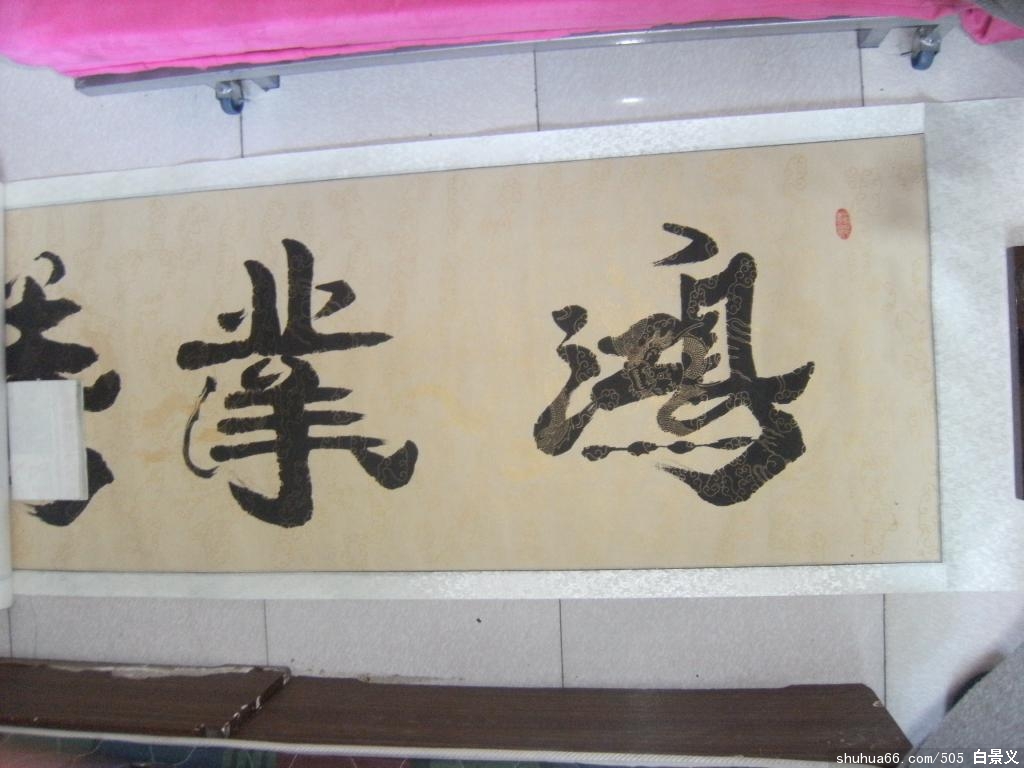 鸿業
shuhua66.com/505 白景义